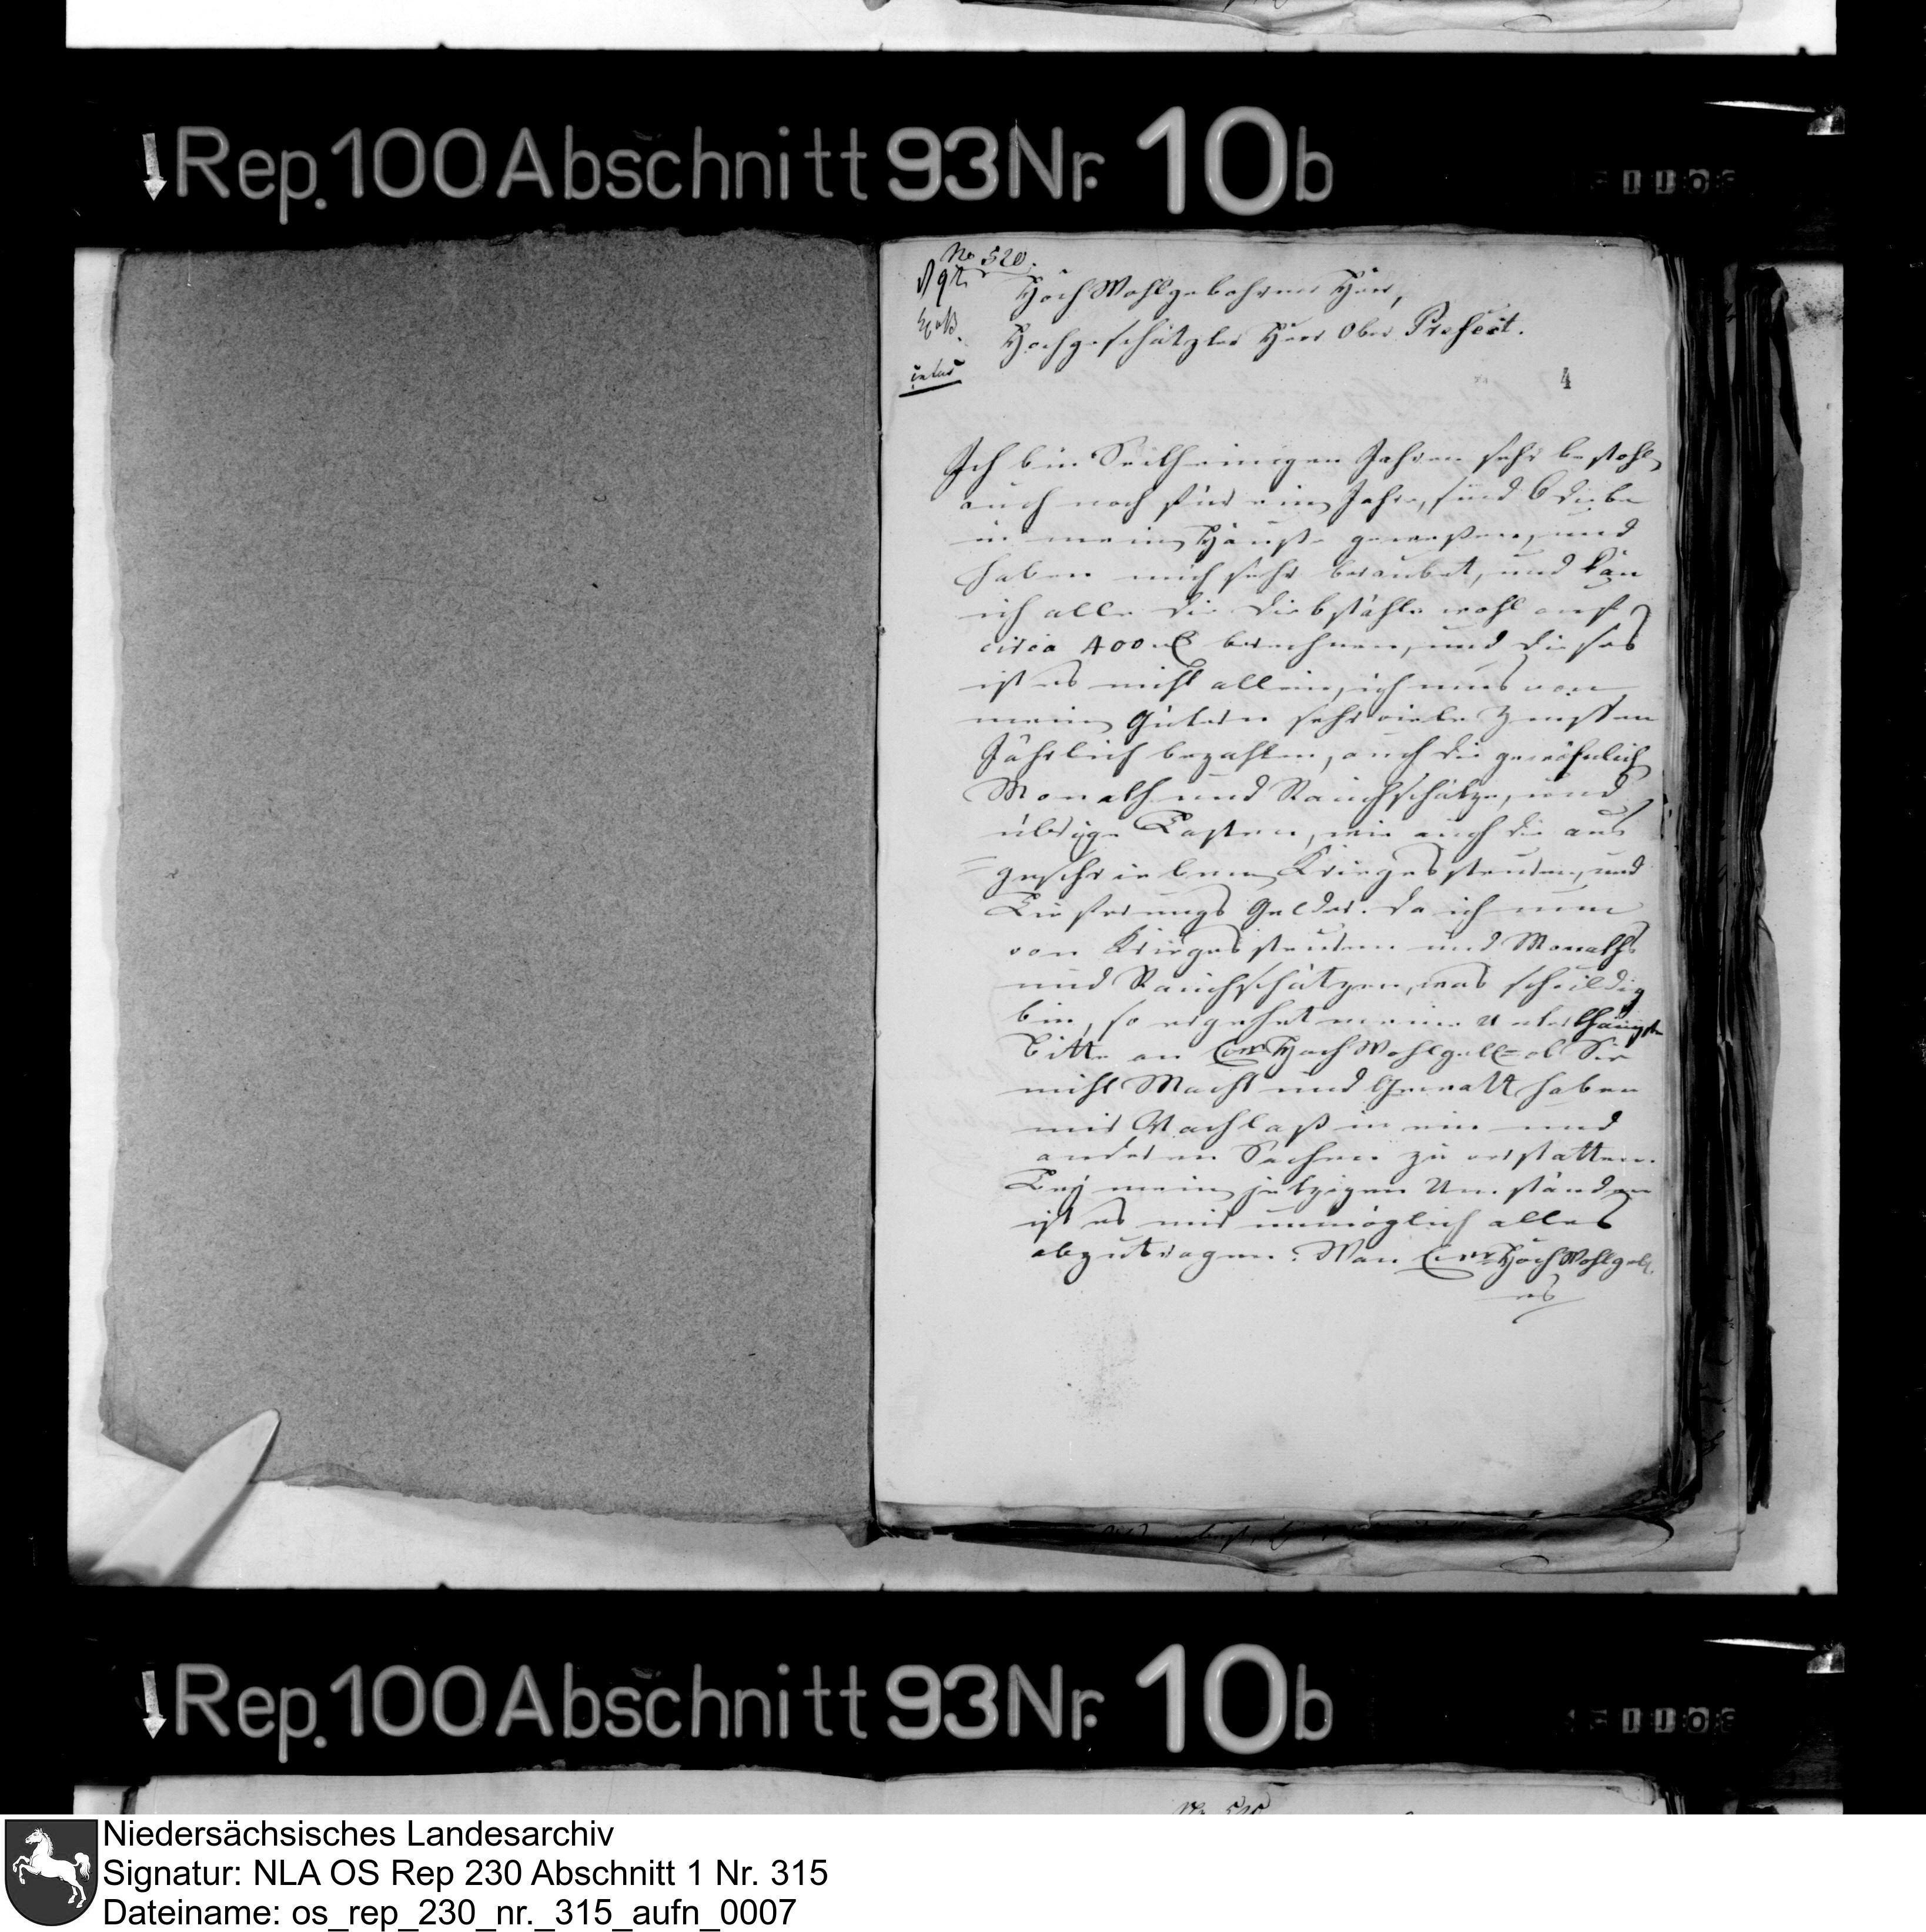 Rep. 100 Abschnitt 93 Nr. 10b
No 520.
HochWohlgebohrner Herr,
Hochgeschätzter Herr Ober Prefect.
4
Ich bin Seith einigen Jahren sehr bestohl
auch noch für ein Jahr, sind 6 diebe
in mein Hauße geweßen, und
haben mich sehr beraubet, und kan
ich alle die diebstähle wohl auf
circa 400 berechnen, und dieses
ist es nicht allein, ich mus von
mein Gütern sehr viele Zinßen
Jährlich bezahlen, auch die gewöhnlich
Monath und Rauchschätze, und
übrige Lasten, wie auch die aus
geschriebene Kriegessteuren, und
Lieferungs Gelder. da ich nun
von Kriegessteuren und Monaths
und Rauchschätzen, was schuldig
bin, so ergehet meine Unterthänigste
bitte an Ewr HochWohlgeb: ob Sie
nicht Macht und Gewalt haben
mir Nachlaß in ein und
anderen Sachen zu erstatten.
Bey mein jetzigen Umständen
ist es mir unmöglich alles
abzutragen. Wan Ewr HochWohlgeb.
es
Rep. 100 Abschnitt 93 Nr. 10b
Niedersächsisches Landesarchiv
Signatur: NLA OS Rep 230 Abschnitt 1 Nr. 315
Dateiname: os_rep_230_nr._315_aufn_0007